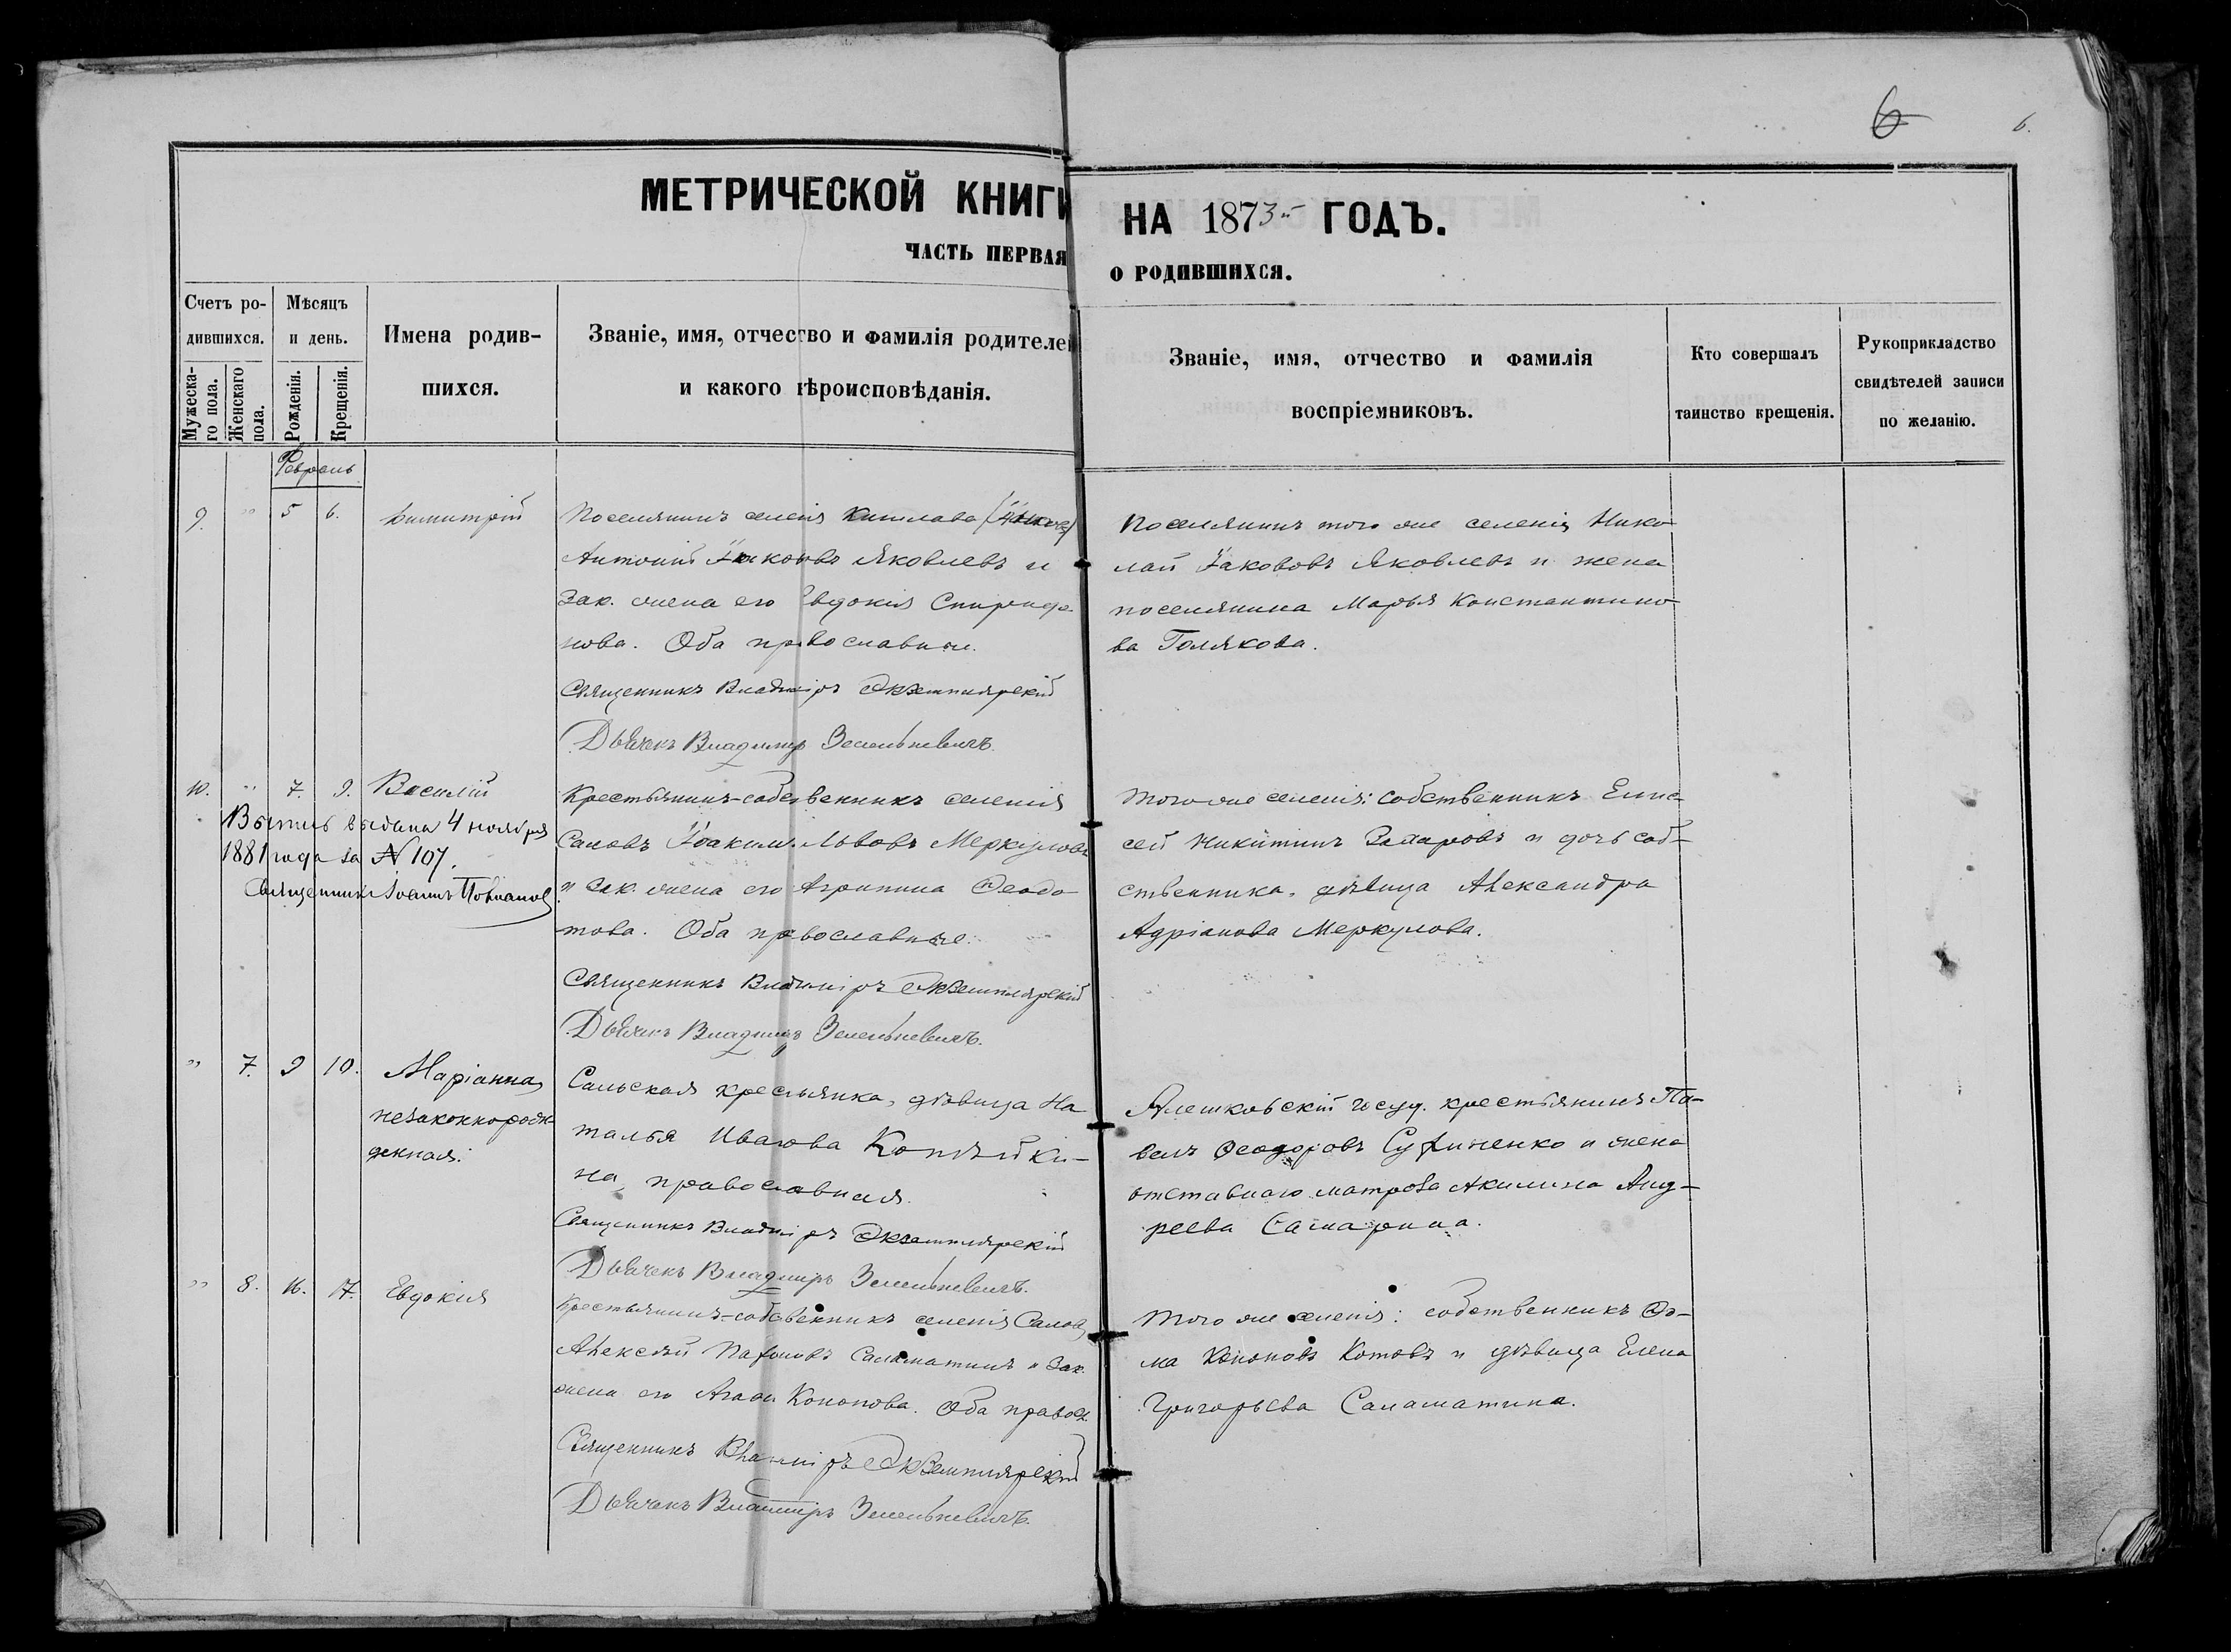 6
6.
МЕТРИЧЕСКОЙ КНИГИ НА 1873й ГОДЪ.
ЧАСТЬ ПЕРВАЯ О РОДИВШИХСЯ.
Счетъ ро-
дившихся.
Мужеска-
го пола.
Женскаго
пола.
Мѣсяцъ
и день.
Рожденія.
Крещенія.
Имена родив-
шихся.
Званіе, имя, отчество и фамилія родителей
и какого вѣроисповѣданія.
Званіе, имя, отчество и фамилія
воспріемниковъ.
Кто совершалъ
таинство крещенія.
Рукоприкладство
свидѣтелей записи
по желанію.
Февраль
9. " 5 6. Димитрій
Поселянинъ селенія
Антоній Яковлевъ и
зак. жена его Евдокія Спиридо-
нова. Оба православные.
Священникъ Владиміръ Экземплярскій
Дьячекъ Владимиръ Зеленкевичъ.
Поселянинъ того же селенія Нико-
лай Іакововъ Яковлевъ и жена
поселянина Марья Константино-
ва Голякова.
10. " 7. 9. Василій
Выпись выдана 4 ноября
1881 года за № 107.
Священникъ Іоаннъ
Крестьянинъ-собственникъ селенія
Саловъ Іоакимъ Львовъ Меркуловъ
и зак. жена его Агрипина Феодо-
това. Оба православные.
Священникъ Владиміръ Экземплярскій
Дьячекъ Владимиръ Зеленкевичъ.
Того же селенія: собственникъ Елис-
сей Никитинъ Захаровъ и дочь соб-
ственника, дѣвица Александра
Адріанова Меркулова.
" 7. 9 10. Маріанна,
незаконнорож-
денная.
Сальская крестьянка, дѣвица На-
талья Иванова Копѣйки-
на, православная.
Священникъ Владиміръ Экземплярскій
Дьячекъ Владимиръ Зеленкевичъ.
Алешковскій госуд. крестьянинъ Па-
велъ Феодоровъ и жена
отставнаго матроса Акилина Анд-
реева Самарина.
" 8. 16. 17. Евдокія
Крестьянинъ-собственникъ селенія Саловъ,
Алексѣй Саламатинъ и зак.
жена его Агафія Кононова. Оба правосл.
Священникъ Владиміръ Экземплярскій
Дьячекъ Владимиръ Зеленкевичъ.
Того же селенія: собственникъ Фо-
ма Кононовъ Котовъ и дѣвица Елена
Григорьева Саламатина.